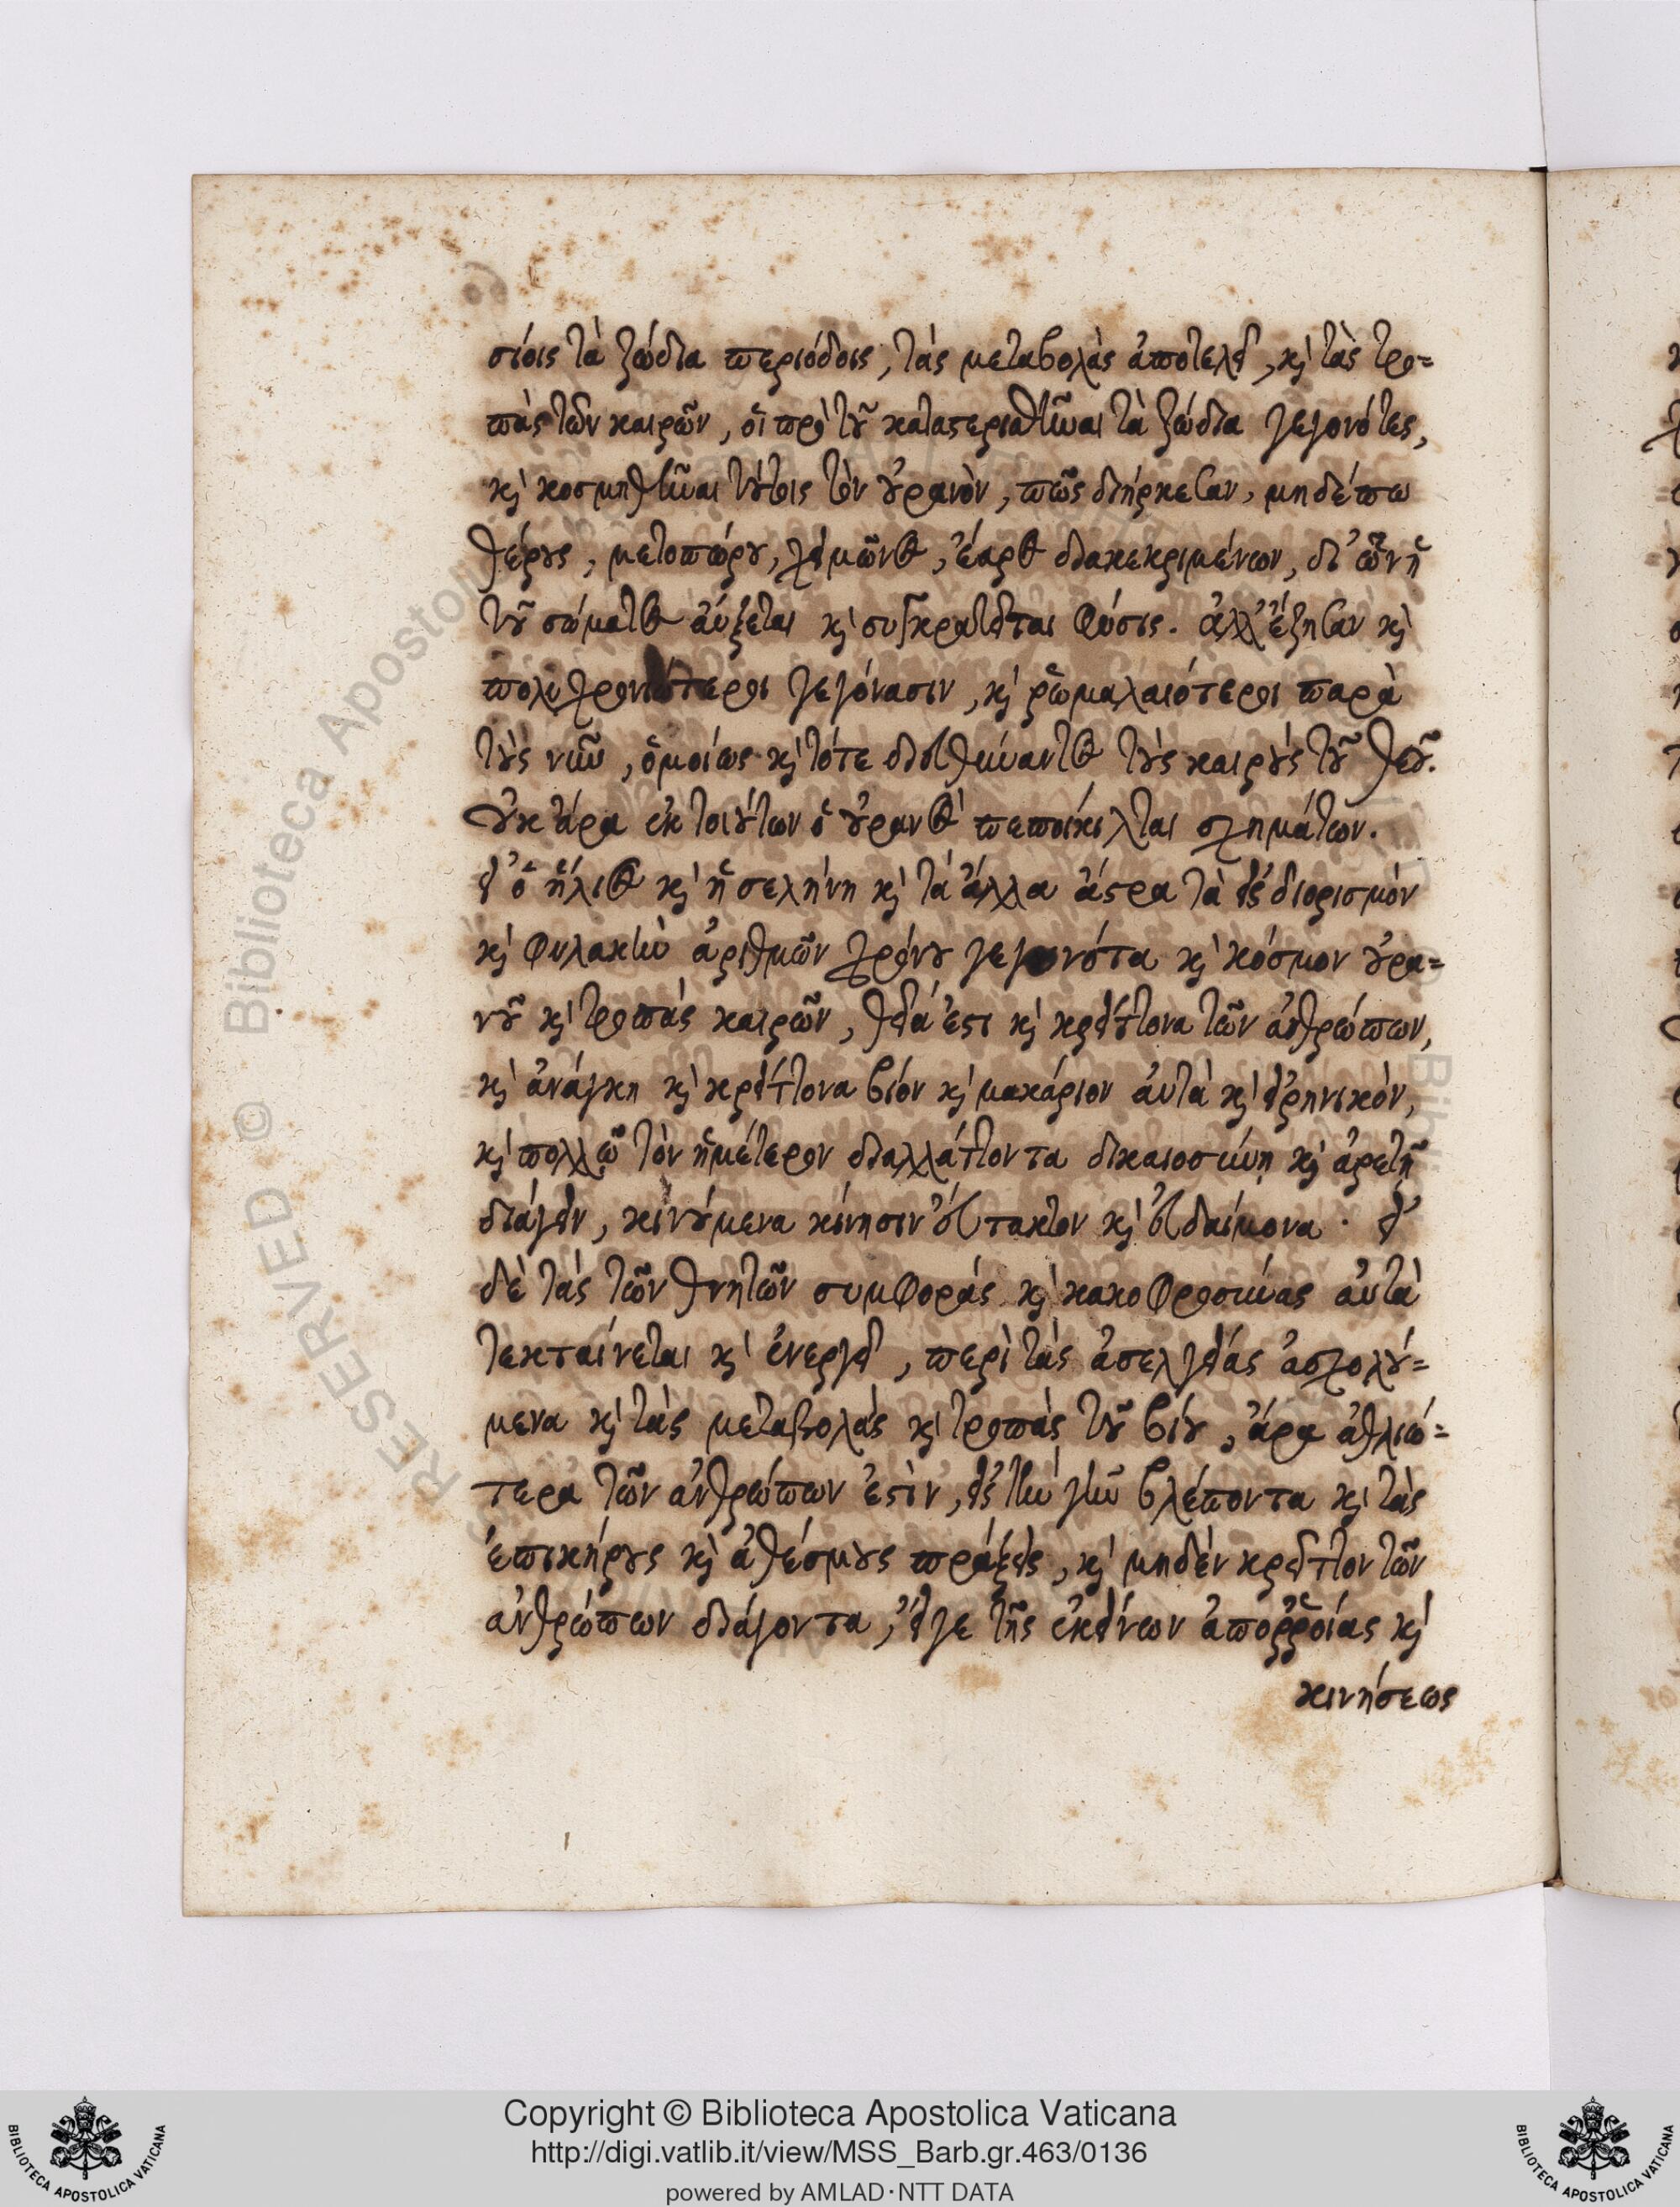 σίοις τὰ ζώδια περιόδοις, τὰς μεταβολὰς ἀποτελεῖ, κὶ τὰς τρο=
πὰς τῶν καιρῶν, οἱ πρὸ τοῦ καταστερισθῆναι τὰ ζώδια γεγονότες,
κὶ κοσμηθῆναι τούτοις τὸν οὐρανὸν, πῶς διήρκεσαν, μηδέπω
θέρους, μετοπώρου, χειμῶνος, ἔαρος διακεκριμένων, δι' ὧν ἡ
τοῦ σώματος αὔξεται κὶ συγκρατεῖται φύσις. ἀλλ' ἔζησαν κὶ
πολυχρονιώτεροι γεγόνασιν, κὶ ῥωμαλαιότεροι παρὰ
τοὺς νῦν, ὁμοίως κὶ τότε διευθύναντος τοὺς καιροὺς τοῦ θεοῦ.
οὐκ ἄρα ἐκ τοιούτων ὁ οὐρανὸς πεποίκιλται σχημάτων.
εἰ ὁ ἥλιος κὶ ἡ σελήνη κὶ τὰ ἄλλα ἄστρα τὰ εἰς διορισμὸν
κὶ φυλακὴν ἀριθμῶν χρόνου γεγονότα κὶ κόσμον οὐρα=
νοῦ κὶ τροπὰς καιρῶν, θεῖά ἐστι κὶ κρείττονα τῶν ἀνθρώπων,
κὶ ἀνάγκη κὶ κρείττονα βίον κὶ μακάριον αὐτὰ κὶ εἰρηνικὸν,
κὶ πολλῷ τὸν ἡμέτερον διαλλάττοντα δικαιοσύνη κὶ ἀρετῆ
διάγειν, κινούμενα κίνησιν εὔτακτον κὶ εὐδαίμονα. εἰ
δὲ τὰς τῶν θνητῶν συμφορὰς κὶ κακοφροσύνας αὐτὰ
τεκταίνεται κὶ ἐνεργεῖ, περὶ τὰς ἀσελγείας ἀσχολού=
μενα κὶ τὰς μεταβολὰς κὶ τροπὰς τοῦ βίου, ἄρα ἀθλιώ=
τερα τῶν ἀνθρώπων ἐστὶν, εἰς τὴν γῆν βλέποντα κὶ τὰς
ἐπικήρους κὶ ἀθέσμους πράξεις, κὶ μηδὲν κρεῖττον τῶν
ἀνθρώπων διάγοντα, εἴγε τῆς ἐκείνων ἀποῤῥοίας κὶ
κινήσεως
RESERVED © Biblioteca Apostoli
Copyright © Biblioteca Apostolica Vaticana
http://digi.vatlib.it/view/MSS_Barb.gr.463/0136
powered by AMLAD·NTT DATA
BIBLIOTECA APOSTOLICA VATICANA
BIBLIOTECA APOSTOLICA VATICANA